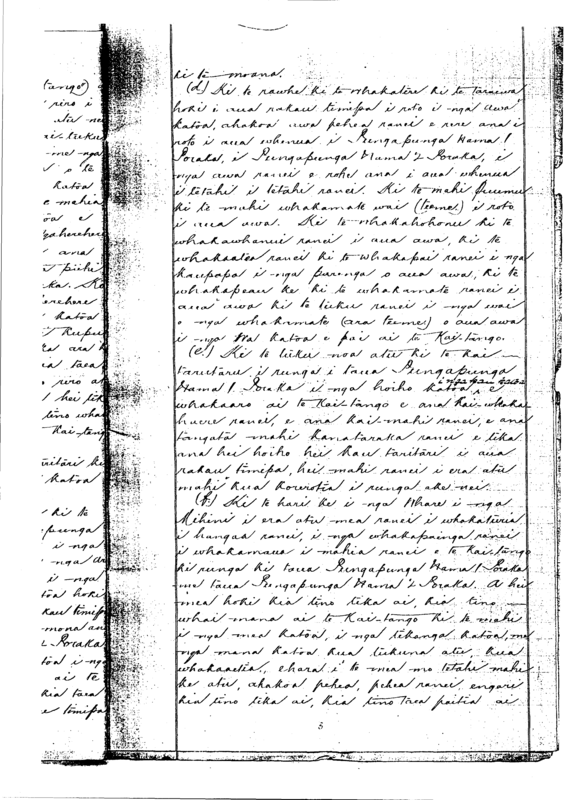 tango)
riro i
atu nei
ai-tuku
me nga
o te
katoa
e mahia
oa e
gaherehere
ana
i piihi
ka. Ko
erehere
katoa
i Rupu
ra ara
ia taea
riro at
hei tik
tino wha
Kai-tang
taritari ki
katoa
ki te
punga
i nga
nga ar
i nga
toa hoki
kau timipa
mona an
2 Poraka
toa i nga
ai te
kia taea
e timipa
ki te moana.
(d) Ki te rawhe ki te whakatere ki te taraiwa
hoki i aua rakau timipa i roto i nga awa
katoa, ahakoa awa pehea ranei e rere ana i
roto i aua whenua i Pungapunga Nama 1
Poraka, i Pungapunga Nama 2 Poraka, i
nga awa ranei e rohe ana i aua whenua
i tetahi i tetahi ranei. Ki te mahi puumu
ki te mahi whakamate wai (teeme) i roto
i aua awa. Ki te whakahohonu ki te
whakawhanui ranei i aua awa, ki te
whakaatea ranei ki te whakapai ranei i nga
kaupapa i nga parenga o aua awa, ki te
whakapeau ke ki te whakamate ranei i
aua awa ki te tuku ranei i nga wai
o nga whakamate (ara teeme) o aua awa
i nga Wa katoa e pai ai te Kai-tango.
(e) Ki te tuku noa atu ki te kai
taritaru i runga i taua Pungapunga
Nama 1 Poraka i nga hoiho katoa e
whakaaro ai te Kai-tango e ana kai-whaka
haere ranei, e ana kai-mahi ranei, e ana
tangata mahi kanataraka ranei e tika
ana hei hoiho hei kau taritari i aua
rakau timipa, hei mahi ranei i era atu
mahi kua korerotia i runga ake nei.
(f) Ki te hari ke i nga Whare i nga
Mihini i era atu mea ranei i whakaturia
i hangaa ranei, i nga whakapainga ranei
i whakamaua i mahia ranei e te Kai-tango
ki runga ki taua Pungapunga Nama 1 Poraka
me taua Pungapunga Nama 2 Poraka. A hei
mea hoki kia tino tika ai, kia tino
whai mana ai te Kai-tango ki te mahi
i nga mea katoa, i nga tikanga katoa, me
nga mana katoa kua tukuna atu, kua
whakaaetia, ehara i te mea mo tetahi mahi
ke atu, ahakoa pehea, pehea ranei, engari
kia tino tika ai, kia tino taea paitia ai
5